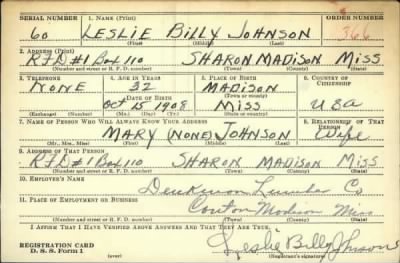 SERIAL NUMBER 1. NAME (Print) ORDER NUMBER
60 LESLIE BILLY JOHNSON 366
(First) (Middle) (Last)
2. ADDRESS (Print)
RFD #1 Box 110 SHARON MADISON MISS
(Number and street or R. F. D. number) (Town) (County) (State)
3. TELEPHONE 4. AGE IN YEARS 5. PLACE OF BIRTH 6. COUNTRY OF CITIZENSHIP
NONE 32 MADISON
(Town or county)
DATE OF BIRTH
Oct 15 1908 MISS USA
(Exchange) (Number) (Mo.) (Day) (Yr.) (State or country)
7. NAME OF PERSON WHO WILL ALWAYS KNOW YOUR ADDRESS 8. RELATIONSHIP OF THAT PERSON
MARY (NONE) JOHNSON Wife
(Mr., Mrs., Miss) (First) (Middle) (Last)
9. ADDRESS OF THAT PERSON
RFD #1 Box 110 SHARON MADISON MISS
(Number and street or R. F. D. number) (Town) (County) (State)
10. EMPLOYER'S NAME
Lumber Co
11. PLACE OF EMPLOYMENT OR BUSINESS
Canton Madison Miss
(Number and street or R. F. D. number) (Town) (County) (State)
I AFFIRM THAT I HAVE VERIFIED ABOVE ANSWERS AND THAT THEY ARE TRUE.
REGISTRATION CARD
D. S. S. Form 1 (over) Leslie Billy Johnson
(Registrant's signature)